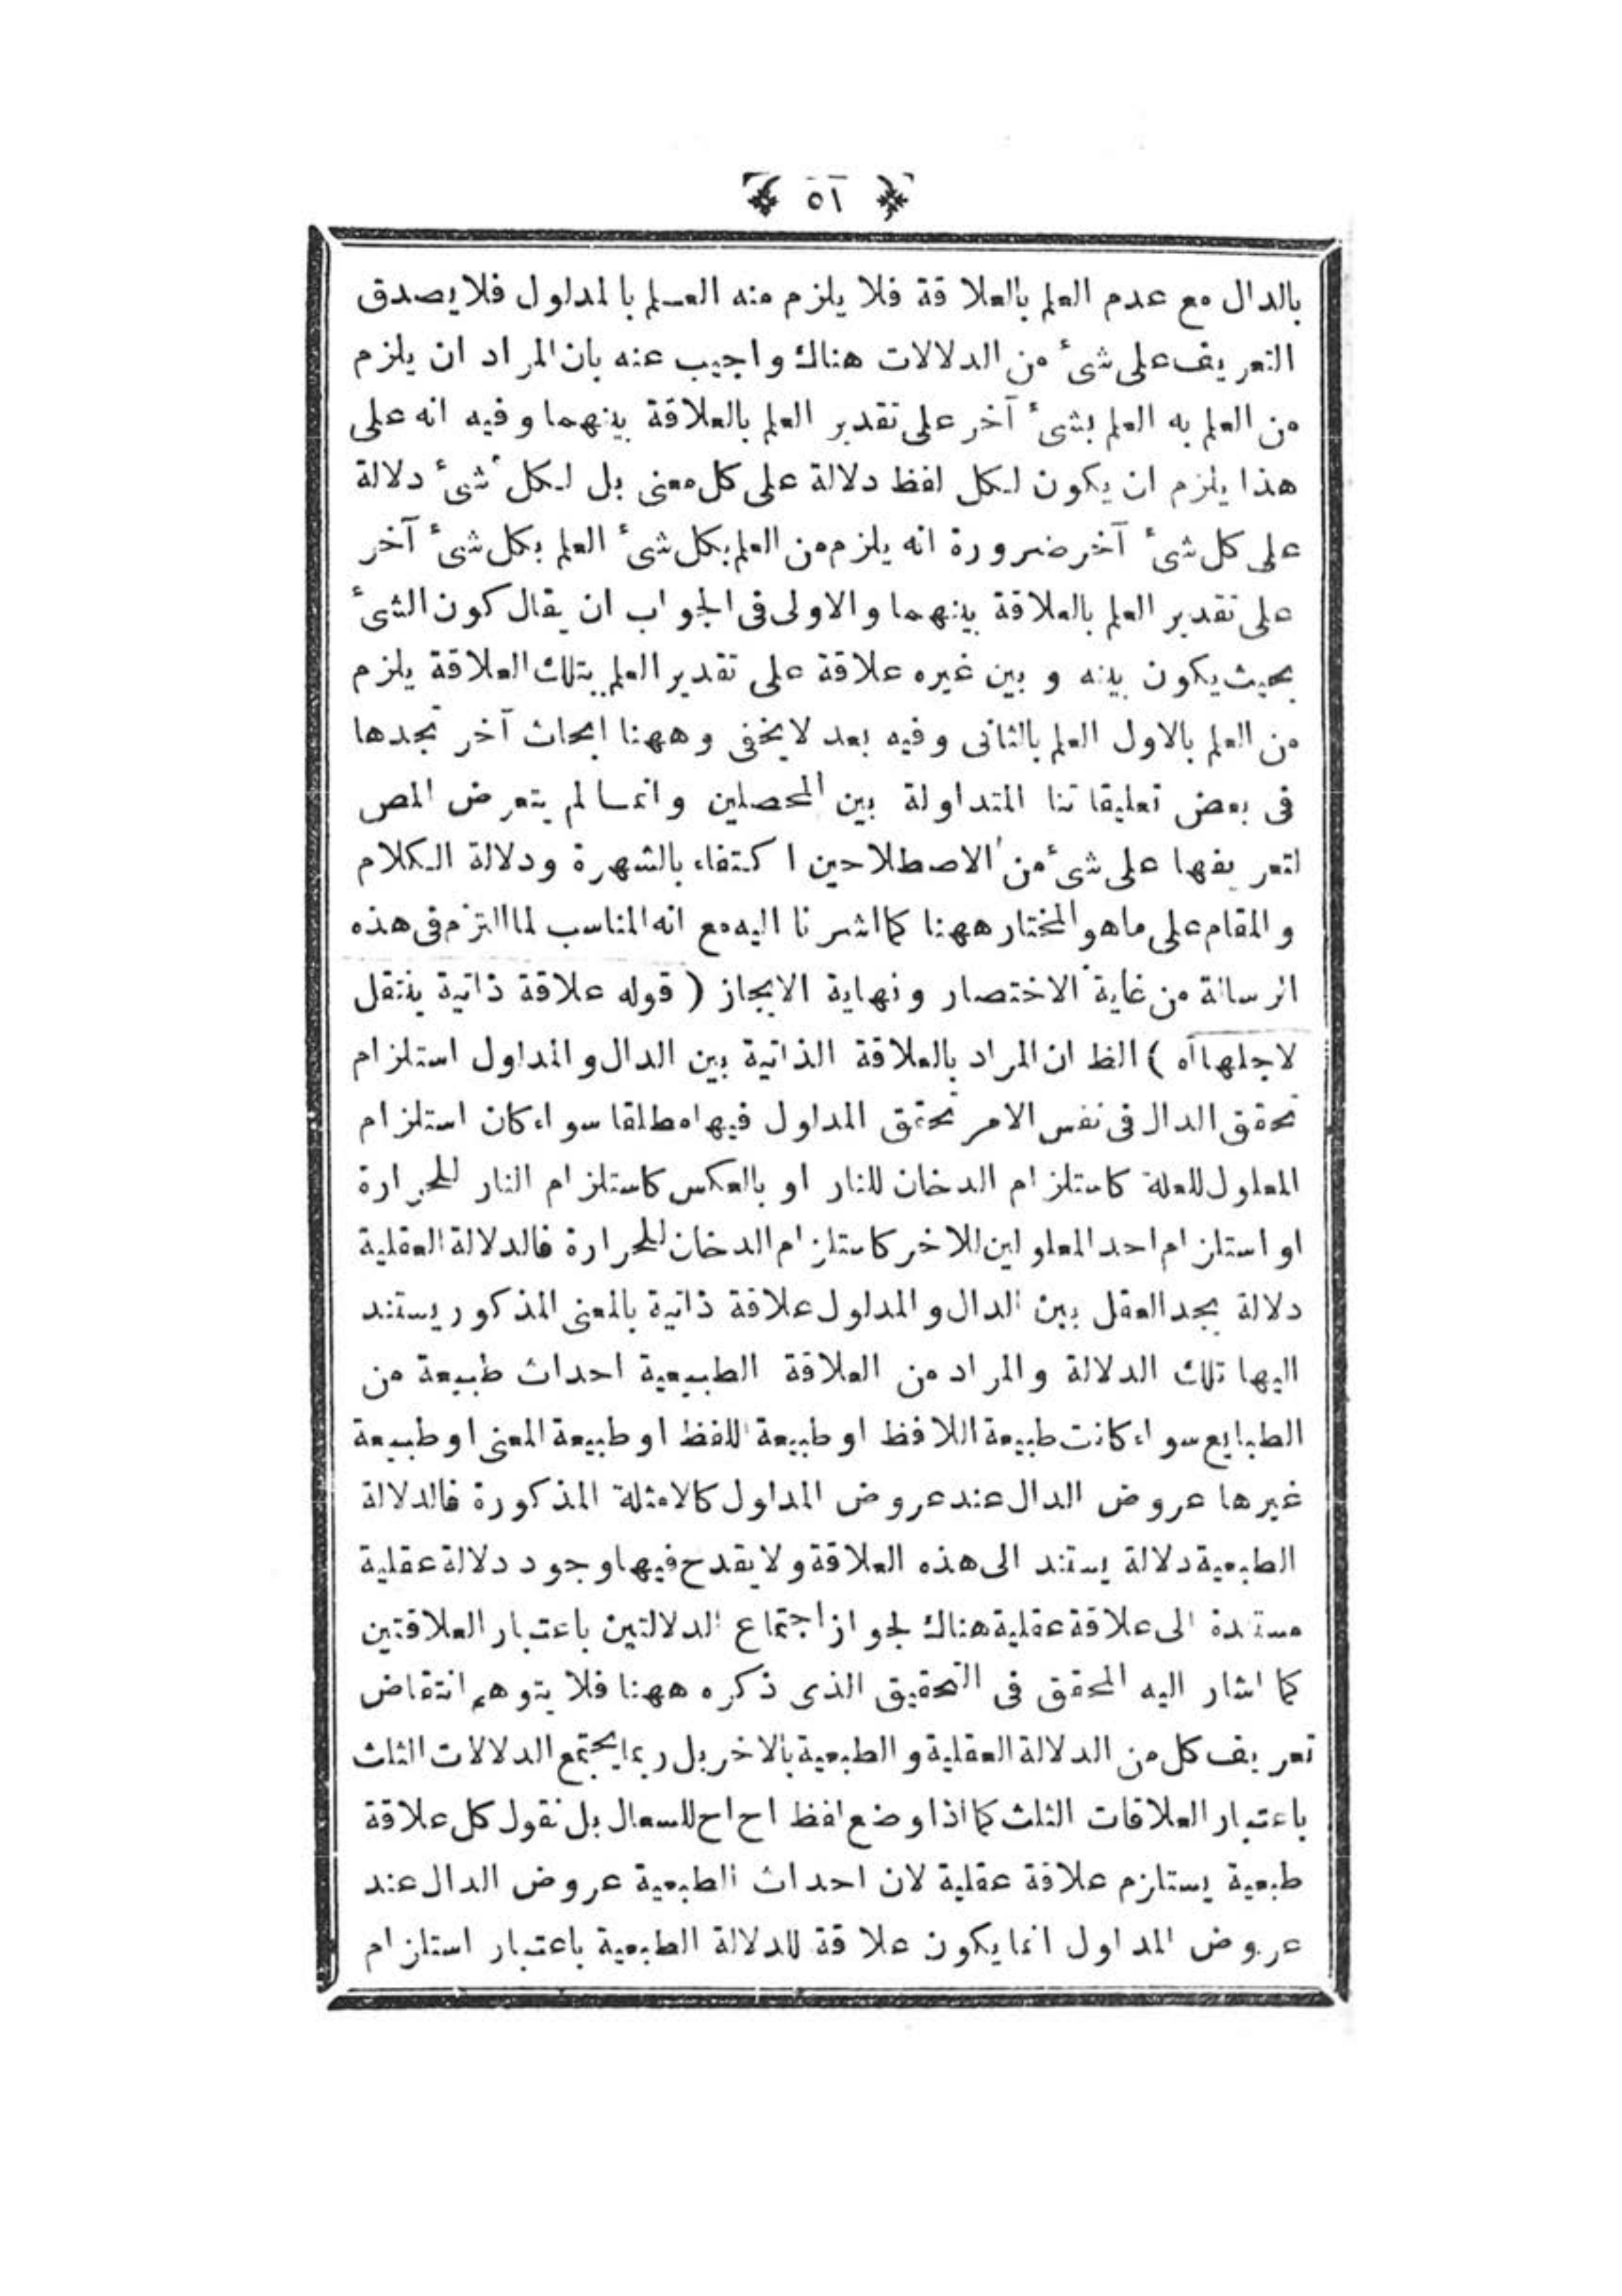 ٥١
بالدال مع عدم العلم بالعلاقة فلا يلزم منه العلم بالمدلول فلا يصدق
التعريف على شئ من الدلالات هناك واجيب عنه بان المراد ان يلزم
من العلم به العلم بشئ آخر على تقدير العلم بالعلاقة بينهما وفيه انه على
هذا يلزم ان يكون لكل لفظ دلالة على كل معنى بل لكل شئ دلالة
على كل شئ آخر ضرورة انه يلزم من العلم بكل شئ العلم بكل شئ آخر
على تقدير العلم بالعلاقة بينهما والاولى فى الجواب ان يقال كون الشئ
بحيث يكون بينه و بين غيره علاقة على تقدير العلم بتلك العلاقة يلزم
من العلم بالاول العلم بالثانى وفيه بعد لا يخفى وههنا ابحاث آخر تجدها
فى بعض تعليقاتنا المتداولة بين المحصلين وانما لم يتعرض المص
لتعريفها على شئ من الاصطلاحين اكتفاء بالشهرة ودلالة الكلام
والمقام على ما هو المختار ههنا كما اشرنا اليه مع انه المناسب لما التزم فى هذه
الرسالة من غاية الاختصار ونهاية الايجاز ( قوله علاقة ذاتية ينتقل
لاجلها آه ) الظ ان المراد بالعلاقة الذاتية بين الدال والمدلول استلزام
تحقق الدال فى نفس الامر تحقق المدلول فيها مطلقا سواء كان استلزام
المعلول للعلة كاستلزام الدخان للنار او بالعكس كاستلزام النار للحرارة
او استلزام احد المعلولين للاخر كاستلزام الدخان للحرارة فالدلالة العقلية
دلالة يجد العقل بين الدال والمدلول علاقة ذاتية بالمعنى المذكور يستند
اليها تلك الدلالة والمراد من العلاقة الطبيعية احداث طبيعة من
الطبايع سواء كانت طبيعة اللافظ او طبيعة اللفظ او طبيعة المعنى او طبيعة
غيرها عروض الدال عند عروض المدلول كالامثلة المذكورة فالدلالة
الطبعية دلالة يستند الى هذه العلاقة ولا يقدح فيها وجود دلالة عقلية
مستندة الى علاقة عقلية هناك لجواز اجتماع الدلالتين باعتبار العلاقتين
كما اشار اليه المحقق فى التحقيق الذى ذكره ههنا فلا يتوهم انتقاض
تعريف كل من الدلالة العقلية والطبعية بالاخر بل ربما يجتمع الدلالات الثلث
باعتبار العلاقات الثلث كما اذا وضع لفظ اح اح للسعال بل نقول كل علاقة
طبعية يستلزم علاقة عقلية لان احداث الطبعية عروض الدال عند
عروض المدلول انما يكون علاقة للدلالة الطبعية باعتبار استلزام